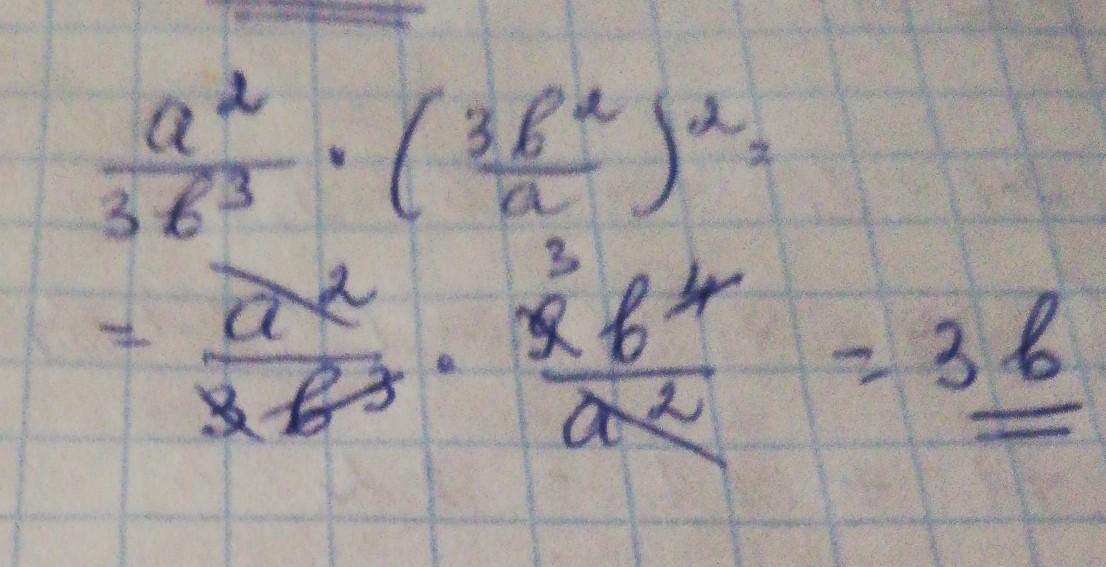 a²/3b³ · (3b²/a)² =
= a²/3b³ · 9b⁴/a² = 3b